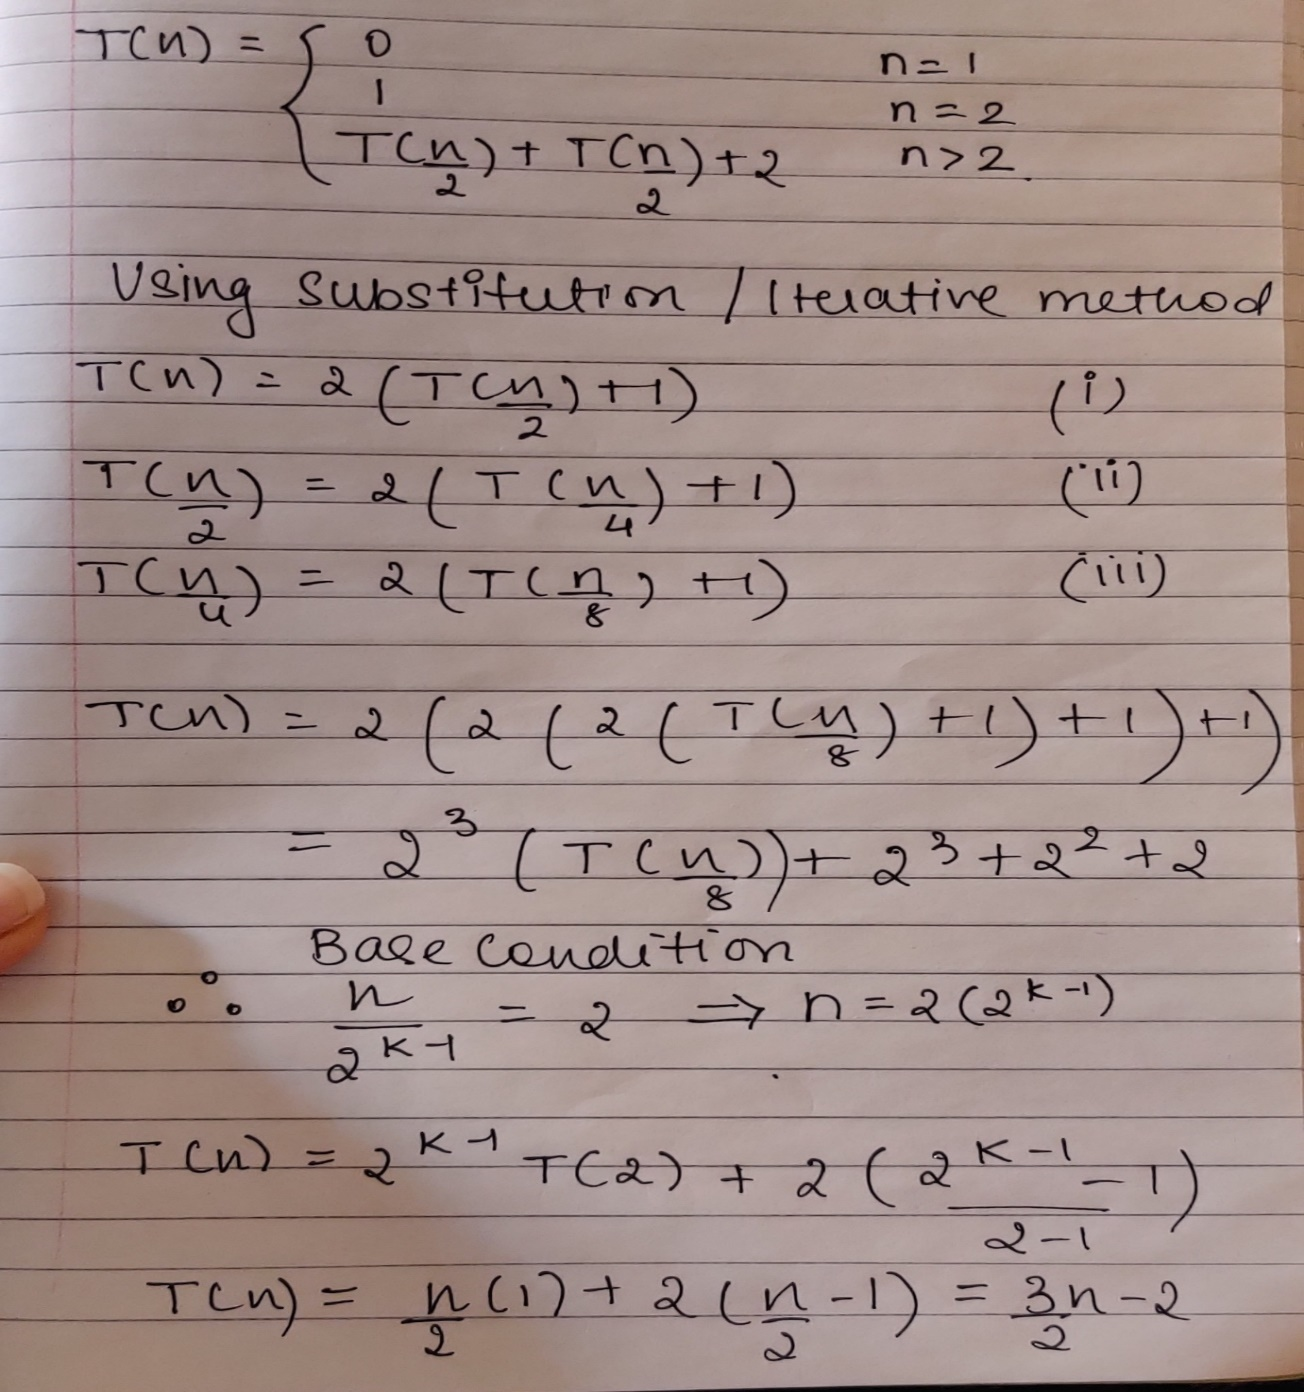 T(n) = { 0 n = 1
1 n = 2
T(n/2) + T(n/2) + 2 n > 2.
Using substitution / Iterative method
T(n) = 2 (T(n/2) + 1) (i)
T(n/2) = 2 (T(n/4) + 1) (ii)
T(n/4) = 2 (T(n/8) + 1) (iii)
T(n) = 2 (2 (2 (T(n/8) + 1) + 1) + 1)
= 2^3 (T(n/8)) + 2^3 + 2^2 + 2
Base condition
∴ n/2^(K-1) = 2 ⇒ n = 2(2^(K-1))
T(n) = 2^(K-1) T(2) + 2 (2^(K-1) - 1)/(2-1)
T(n) = n/2 (1) + 2 (n/2 - 1) = 3n/2 - 2